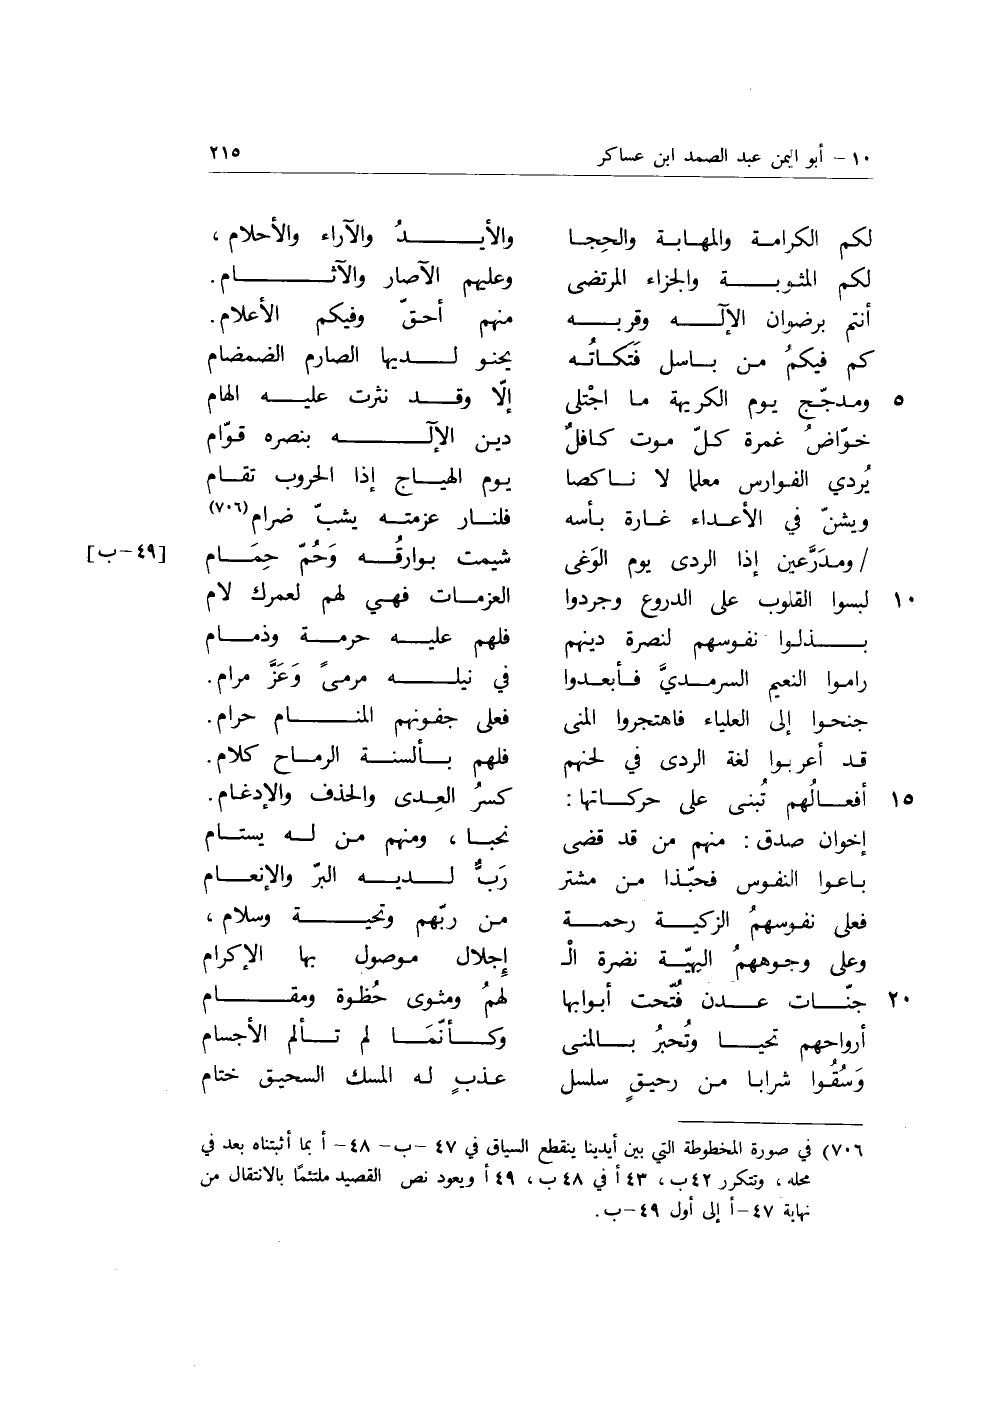 ١٠ – أبو اليمن عبد الصمد ابن عساكر ٢١٥
لكم الكرامة والمهابة والحِجا والأيدُ والآراء والأحلام ،
لكم المثوبة والجزاء المرتضى وعليهم الآصار والآثام .
أنتم برضوان الإله وقربه منهم أحقّ وفيكم الأعلام .
كم فيكمُ من باسل فَتَكاتُه يحنو لديها الصارم الضمضام
٥ ومدجّج يوم الكريهة ما اجْتلى إلّا وقد نثرت عليه الهام
خوّاضُ غمرة كلّ موت كافلٌ دين الإله بنصره قوّام
يُردي الفوارس معلما لا ناكصا يوم الهياج إذا الحروب تقام
ويشنّ في الأعداء غارة بأسه فلنار عزمته يشبّ ضرام(٧٠٦)
/ ومدَرَّعين إذا الردى يوم الوَغى شيمت بوارقُه وَحُمّ حِمَام [٤٩–ب]
١٠ لبسوا القلوب على الدروع وجردوا العزمات فهي لهم لعمرك لام
بذلوا نفوسهم لنصرة دينهم فلهم عليه حرمة وذمام
راموا النعيم السرمديَّ فأبعدوا في نيله مرمىً وَعَزَّ مرام .
جنحوا إلى العلياء فاهتجروا المنى فعلى جفونهم المنام حرام .
قد أعربوا لغة الردى في لحنهم فلهم بألسنة الرماح كلام .
١٥ أفعالُهم تُبنى على حركاتها : كسرُ العِدى والحذف والإدغام .
إخوان صدق : منهم من قد قضى نحبا ، ومنهم من له يستام
باعوا النفوس فحبّذا من مشتر رَبٌّ لديه البرّ والإنعام
فعلى نفوسهمُ الزكية رحمة من ربّهم وتحية وسلام ،
وعلى وجوههمُ البهيّة نضرة الْـ إجلال موصول بها الإكرام
٢٠ جنّات عدن فُتّحت أبوابها لهمُ ومثوى حُظوة ومقام
أرواحهم تحيا وتُحبرُ بالمنى وكأنّمَا لم تألم الأجسام
وَسُقُوا شرابا من رحيقٍ سلسل عذبٍ له المسك السحيق ختام
٧٠٦) في صورة المخطوطة التي بين أيدينا ينقطع السياق في ٤٧ –ب– ٤٨– أ بما أثبتناه بعد في
محله ، وتتكرر ٤٢ب ، ٤٣ أ في ٤٨ ب ، ٤٩ أ ويعود نص القصيد ملتئمًا بالانتقال من
نهاية ٤٧–أ إلى أول ٤٩–ب .